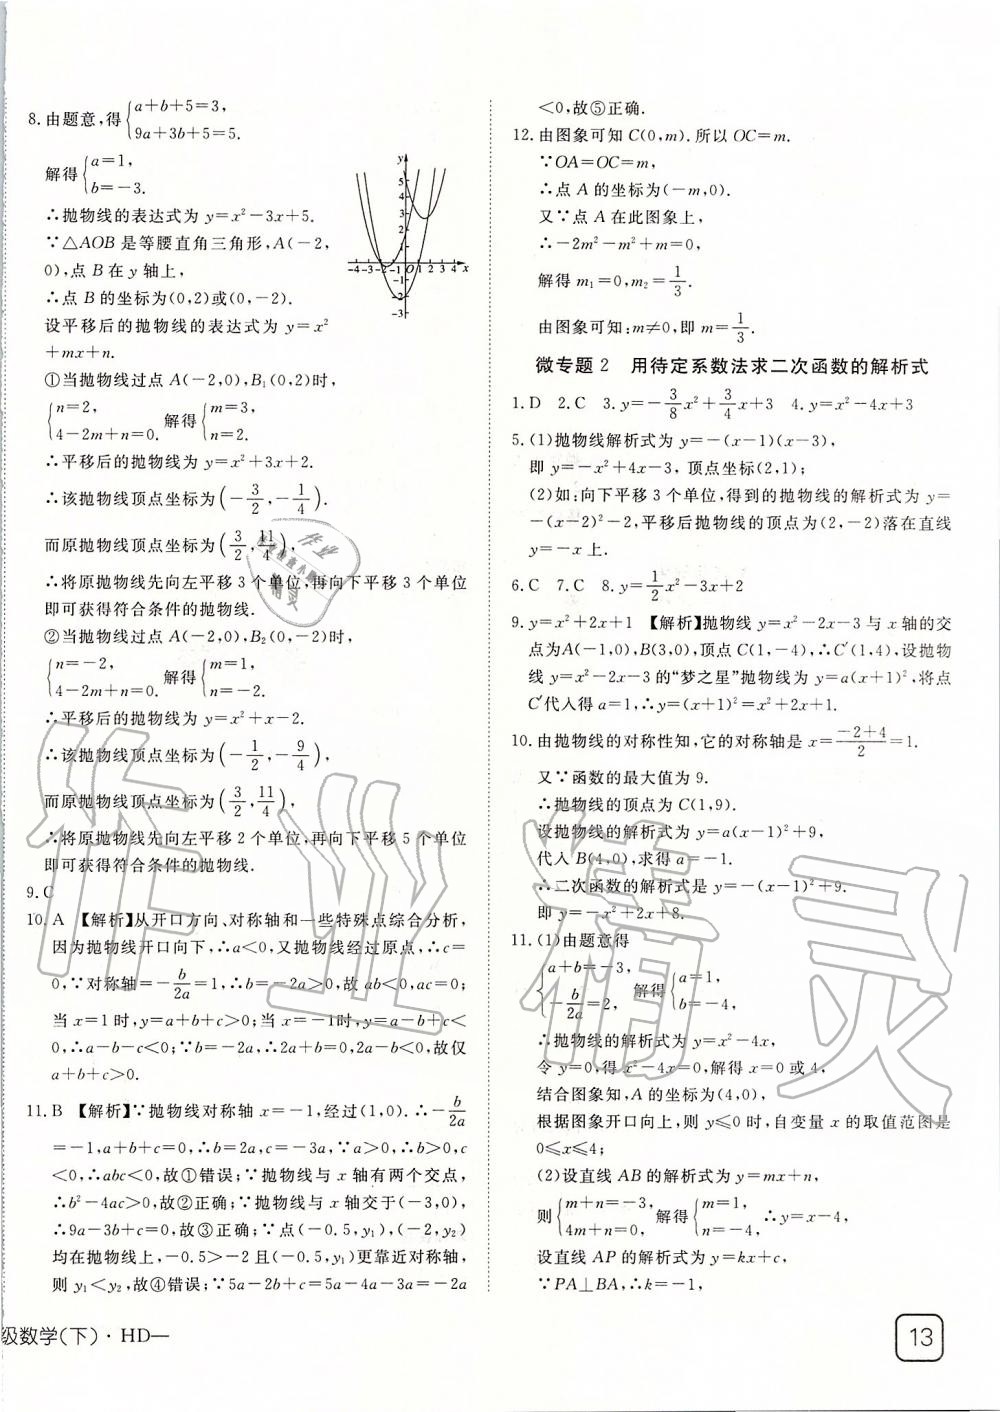 8. 由题意,得{a+b+5=3, 9a+3b+5=5.
解得{a=1, b=-3.
∴抛物线的表达式为 y=x²-3x+5.
∵△AOB 是等腰直角三角形,A(-2,
0),点 B 在 y 轴上,
∴点 B 的坐标为(0,2)或(0,-2).
设平移后的抛物线的表达式为 y=x²
+mx+n.
①当抛物线过点 A(-2,0),B₁(0,2)时,
{n=2, 4-2m+n=0. 解得{m=3, n=2.
∴平移后的抛物线为 y=x²+3x+2.
∴该抛物线顶点坐标为(-3/2,-1/4).
而原抛物线顶点坐标为(3/2,11/4),
∴将原抛物线先向左平移 3 个单位,再向下平移 3 个单位
即可获得符合条件的抛物线.
②当抛物线过点 A(-2,0),B₂(0,-2)时,
{n=-2, 4-2m+n=0. 解得{m=1, n=-2.
∴平移后的抛物线为 y=x²+x-2.
∴该抛物线顶点坐标为(-1/2,-9/4)
而原抛物线顶点坐标为(3/2,11/4),
∴将原抛物线先向左平移 2 个单位,再向下平移 5 个单位
即可获得符合条件的抛物线.
9. C
10. A 【解析】从开口方向、对称轴和一些特殊点综合分析,
因为抛物线开口向下,∴a<0,又抛物线经过原点,∴c=
0,∵对称轴-b/2a=1,∴b=-2a>0,故 ab<0,ac=0;
当 x=1 时,y=a+b+c>0;当 x=-1时,y=a-b+c<
0,∴a-b-c<0;∵b=-2a,∴2a+b=0,∴2a+b=0,故仅
a+b+c>0.
11. B 【解析】∵抛物线对称轴 x=-1,经过(1,0). ∴-b/2a
=-1,a+b+c=0,∴b=2a,c=-3a. ∵a>0,∴b>0,c
<0,∴abc<0,故①错误;∵抛物线与 x 轴有两个交点,
∴b²-4ac>0,故②正确;∵抛物线与 x 轴交于(-3,0),
∴9a-3b+c=0,故③正确;∵点(-0.5,y₁),(-2,y₂)
均在抛物线上,-0.5>-2 且(-0.5,y₁)更靠近对称轴,
则 y₁<y₂,故④错误;∵5a-2b+c=5a-4a-3a=-2a
级数学(下)·HD—
y
5
4
3
-4-3-2-1 O 1 2 3 4 x
-2
-3
<0,故⑤正确.
12. 由图象可知 C(0,m). 所以 OC=m.
∵OA=OC=m,
∴点 A 的坐标为(-m,0).
又∵点 A 在此图象上,
∴-2m²-m²+m=0,
解得 m₁=0,m₂=1/3.
由图象可知:m≠0,即 m=1/3.
微专题 2 用待定系数法求二次函数的解析式
1. D 2. C 3. y=-3/8x²+3/4x+3 4. y=x²-4x+3
5. (1)抛物线解析式为 y=-(x-1)(x-3),
即 y=-x²+4x-3,顶点坐标(2,1);
(2)如:向下平移 3 个单位,得到的抛物线的解析式为 y=
-(x-2)²-2,平移后抛物线的顶点为(2,-2)落在直线
y=-x 上.
6. C 7. C 8. y=1/2x²-3x+2
9. y=x²+2x+1 【解析】抛物线 y=x²-2x-3 与 x 轴的交
点为A(-1,0),B(3,0),顶点 C(1,-4),∴C′(1,4),设抛物
线 y=x²-2x-3 的“梦之星”抛物线为 y=a(x+1)²,将点
C′代入得 a=1,∴y=(x+1)²=x²+2x+1.
10. 由抛物线的对称性知,它的对称轴是 x=(-2+4)/2=1.
又∵函数的最大值为 9.
∴抛物线的顶点为 C(1,9).
设抛物线的解析式为 y=a(x-1)²+9,
代入 B(4,0),求得 a=-1.
∴二次函数的解析式是 y=-(x-1)²+9.
即 y=-x²+2x+8.
11. (1)由题意得
{a+b=-3, -b/2a=2, 解得{a=1, b=-4,
∴抛物线的解析式为 y=x²-4x,
令 y=0,得 x²-4x=0,解得 x=0或 4,
结合图象知,A 的坐标为(4,0),
根据图象开口向上,则 y≤0时,自变量 x 的取值范围是
0≤x≤4;
(2)设直线 AB 的解析式为 y=mx+n,
则{m+n=-3, 4m+n=0, 解得{m=1, n=-4, ∴y=x-4,
设直线 AP 的解析式为 y=kx+c,
∵PA⊥BA,∴k=-1,
13
作业精灵